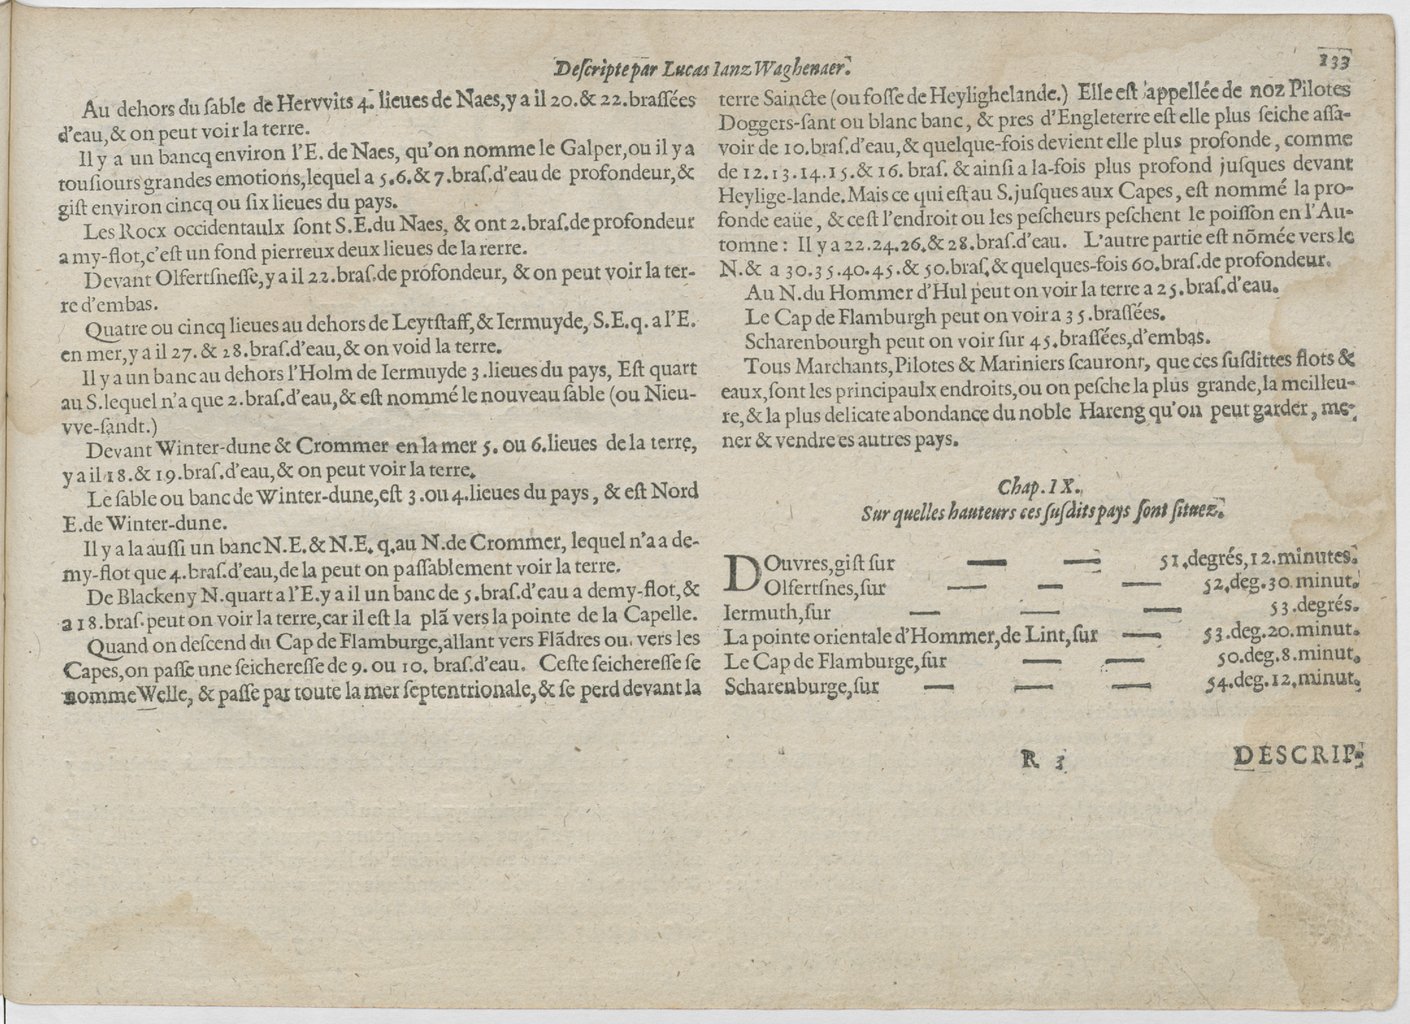 Descripte par Lucas Ianz Waghenaer. 133
Au dehors du sable de Hervvits 4. lieues de Naes, y a il 20. & 22. brassées
d'eau, & on peut voir la terre.
Il y a un bancq environ l'E. de Naes, qu'on nomme le Galper, ou il y a
tousiours grandes emotions, lequel a 5.6. & 7. bras. d'eau de profondeur, &
gist environ cincq ou six lieues du pays.
Les Rocx occidentaulx sont S.E. du Naes, & ont 2. bras. de profondeur
a my-flot, c'est un fond pierreux deux lieues de la rerre.
Devant Olfertsnesse, y a il 22. bras. de profondeur, & on peut voir la ter-
re d'embas.
Quatre ou cincq lieues au dehors de Leytstaff, & Iermuyde, S.E.q. a l'E.
en mer, y a il 27. & 28. bras. d'eau, & on void la terre.
Il y a un banc au dehors l'Holm de Iermuyde 3. lieues du pays, Est quart
au S. lequel n'a que 2. bras. d'eau, & est nommé le nouveau sable (ou Nieu-
vve-sandt.)
Devant Winter-dune & Crommer en la mer 5. ou 6. lieues de la terre,
y a il 18. & 19. bras. d'eau, & on peut voir la terre.
Le sable ou banc de Winter-dune, est 3. ou 4. lieues du pays, & est Nord
E. de Winter-dune.
Il y a la aussi un banc N.E. & N.E. q. au N. de Crommer, lequel n'a a de-
my-flot que 4. bras. d'eau, de la peut on passablement voir la terre.
De Blackeny N. quart a l'E. y a il un banc de 5. bras. d'eau a demy-flot, &
a 18. bras. peut on voir la terre, car il est la plā vers la pointe de la Capelle.
Quand on descend du Cap de Flamburge, allant vers Flādres ou vers les
Capes, on passe une seicheresse de 9. ou 10. bras. d'eau. Ceste seicheresse se
nomme Welle, & passe par toute la mer septentrionale, & se perd devant la
terre Saincte (ou fosse de Heylighelande.) Elle est appellée de noz Pilotes
Doggers-sant ou blanc banc, & pres d'Engleterre est elle plus seiche assa-
voir de 10. bras. d'eau, & quelque-fois devient elle plus profonde, comme
de 12.13.14.15. & 16. bras. & ainsi a la-fois plus profond jusques devant
Heylige-lande. Mais ce qui est au S. jusques aux Capes, est nommé la pro-
fonde eaüe, & cest l'endroit ou les pescheurs peschent le poisson en l'Au-
tomne: Il y a 22.24.26. & 28. bras. d'eau. L'autre partie est nōmée vers le
N. & a 30.35.40.45. & 50. bras. & quelques-fois 60. bras. de profondeur.
Au N. du Hommer d'Hul peut on voir la terre a 25. bras. d'eau.
Le Cap de Flamburgh peut on voir a 35. brassées.
Scharenbourgh peut on voir sur 45. brassées, d'embas.
Tous Marchants, Pilotes & Mariniers scauronr, que ces susdittes flots &
eaux, sont les principaulx endroits, ou on pesche la plus grande, la meilleu-
re, & la plus delicate abondance du noble Hareng qu'on peut garder, me-
ner & vendre es autres pays.
Chap. IX.
Sur quelles hauteurs ces susdits pays sont situez.
DOuvres, gist sur — — 51. degrés, 12. minutes.
Olfertsnes, sur — — — 52. deg. 30. minut.
Iermuth, sur — — — 53. degrés.
La pointe orientale d'Hommer, de Lint, sur — 53. deg. 20. minut.
Le Cap de Flamburge, sur — — 50. deg. 8. minut.
Scharenburge, sur — — — 54. deg. 12. minut.
R 3 DESCRIP-